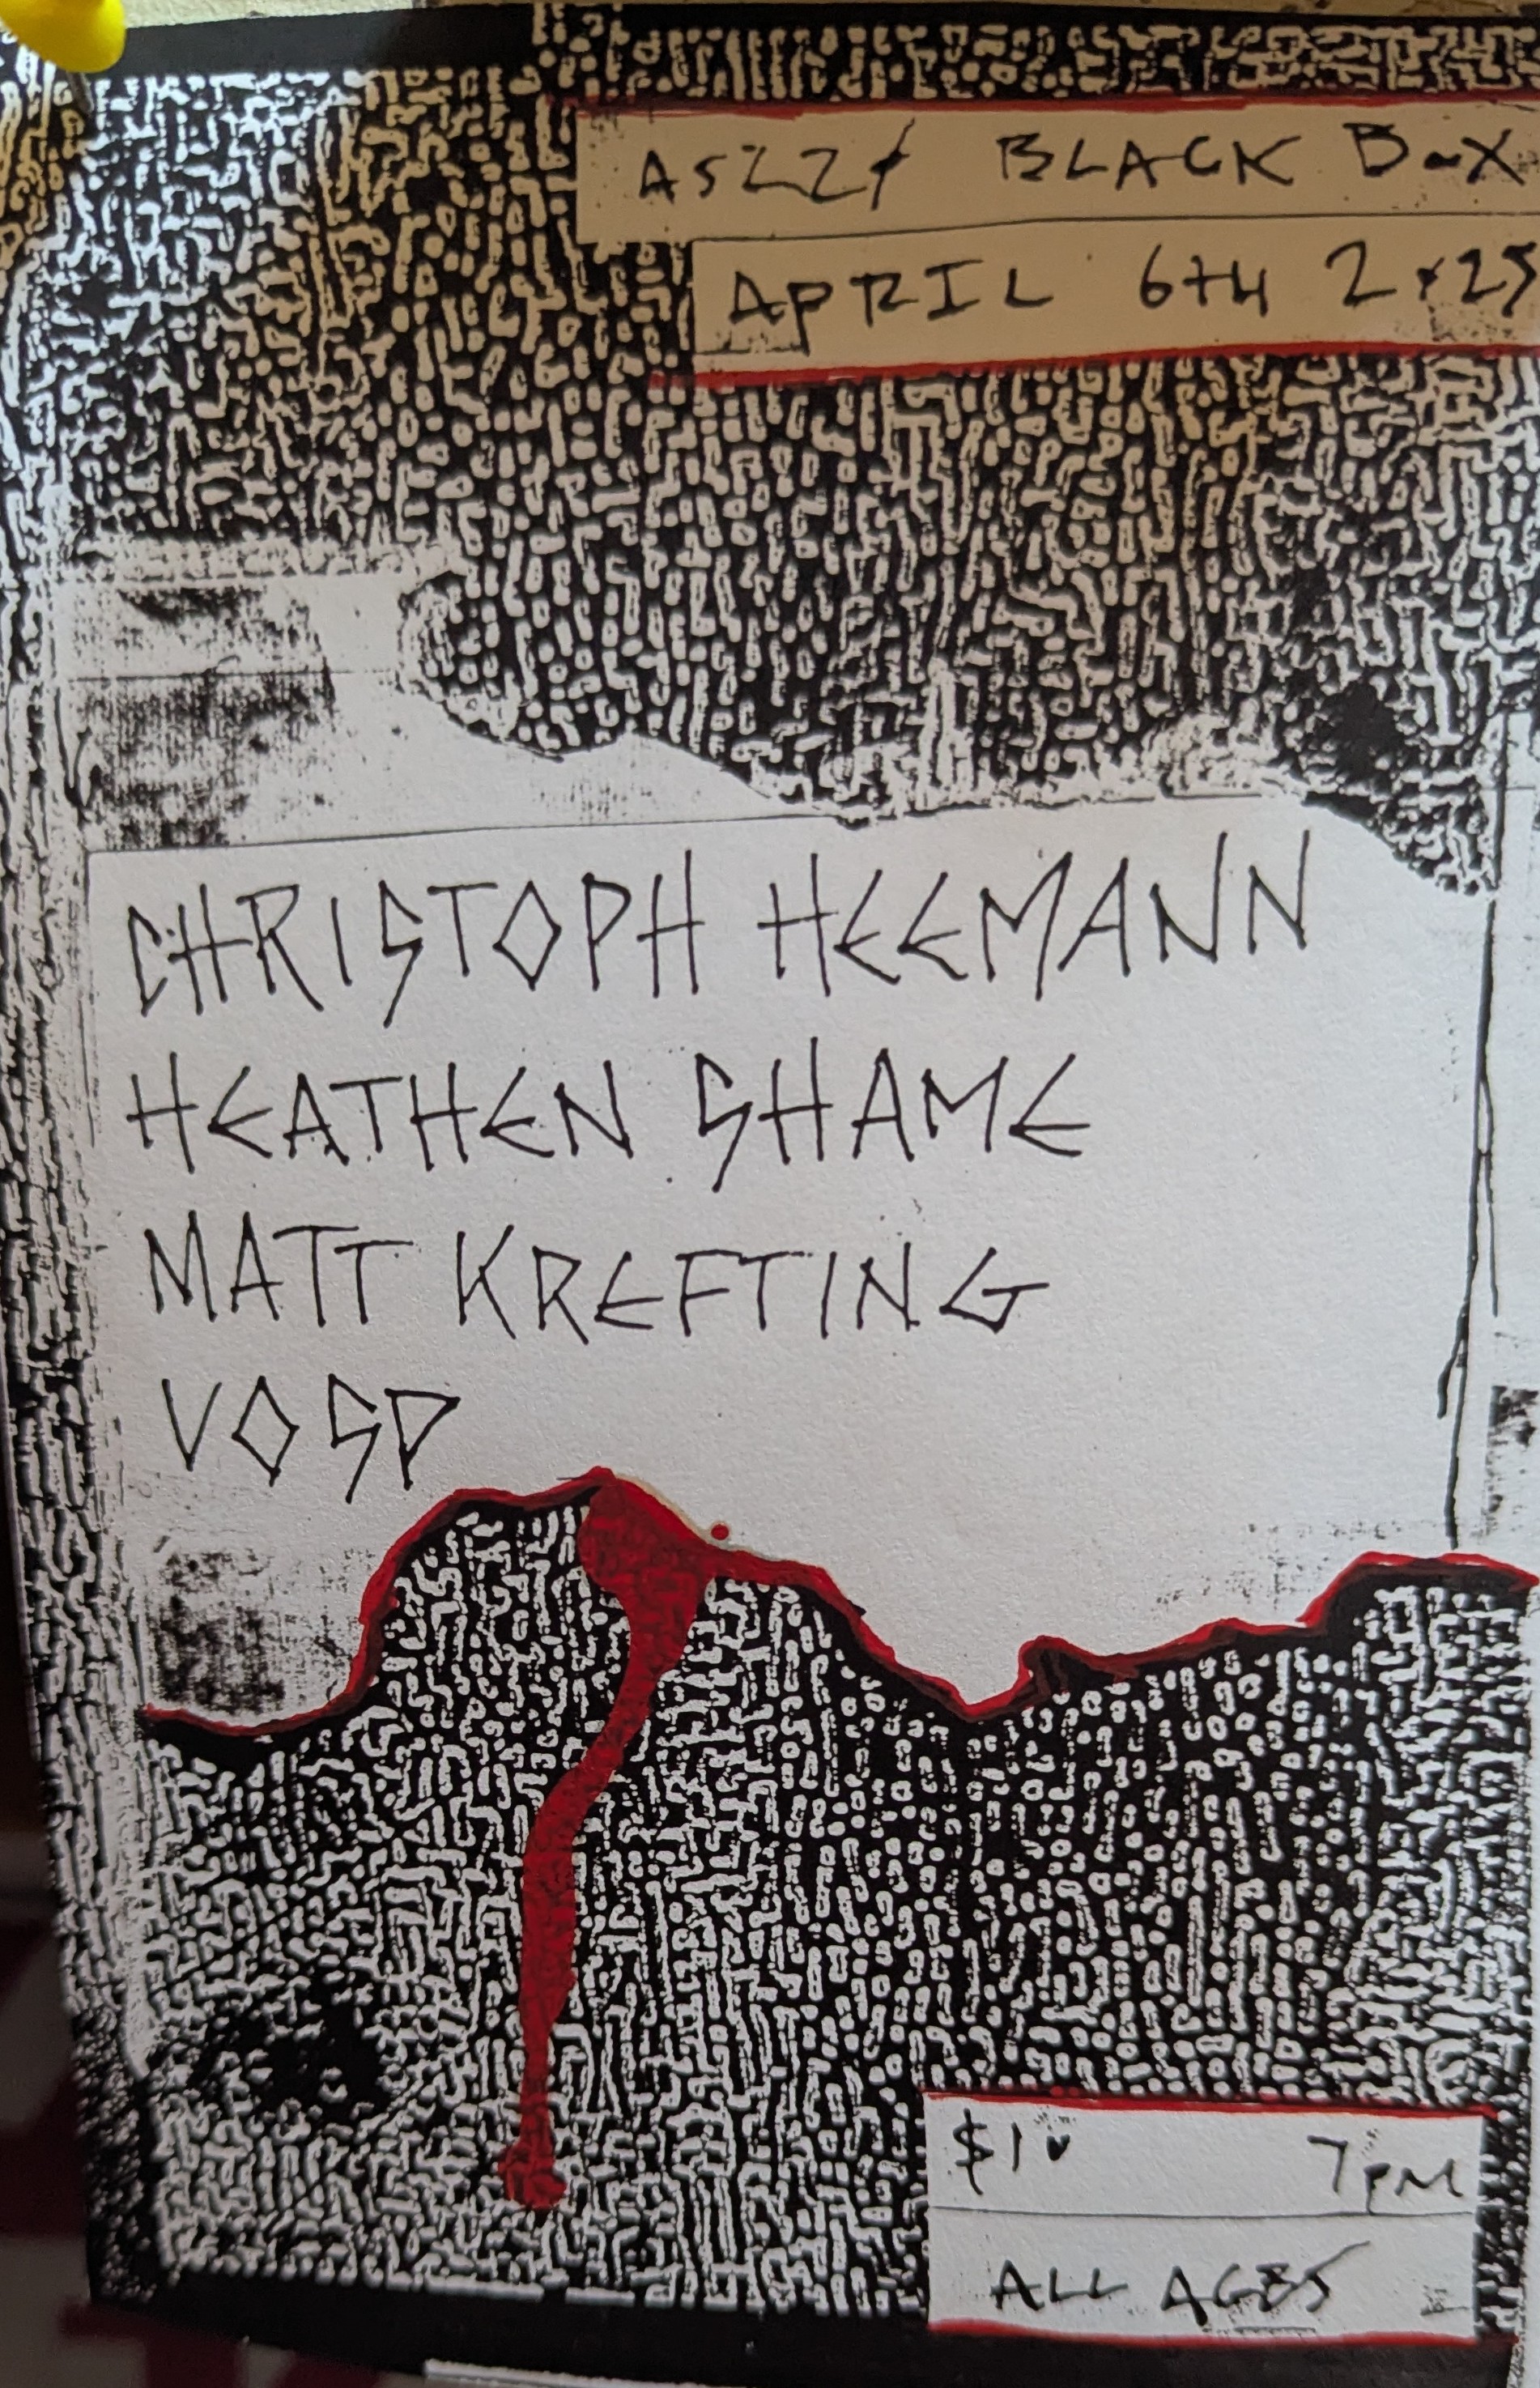 AS220 BLACK BOX
APRIL 6TH 2025
CHRISTOPH HEEMANN
HEATHEN SHAME
MATT KREFTING
VOSP
$10 7PM
ALL AGES